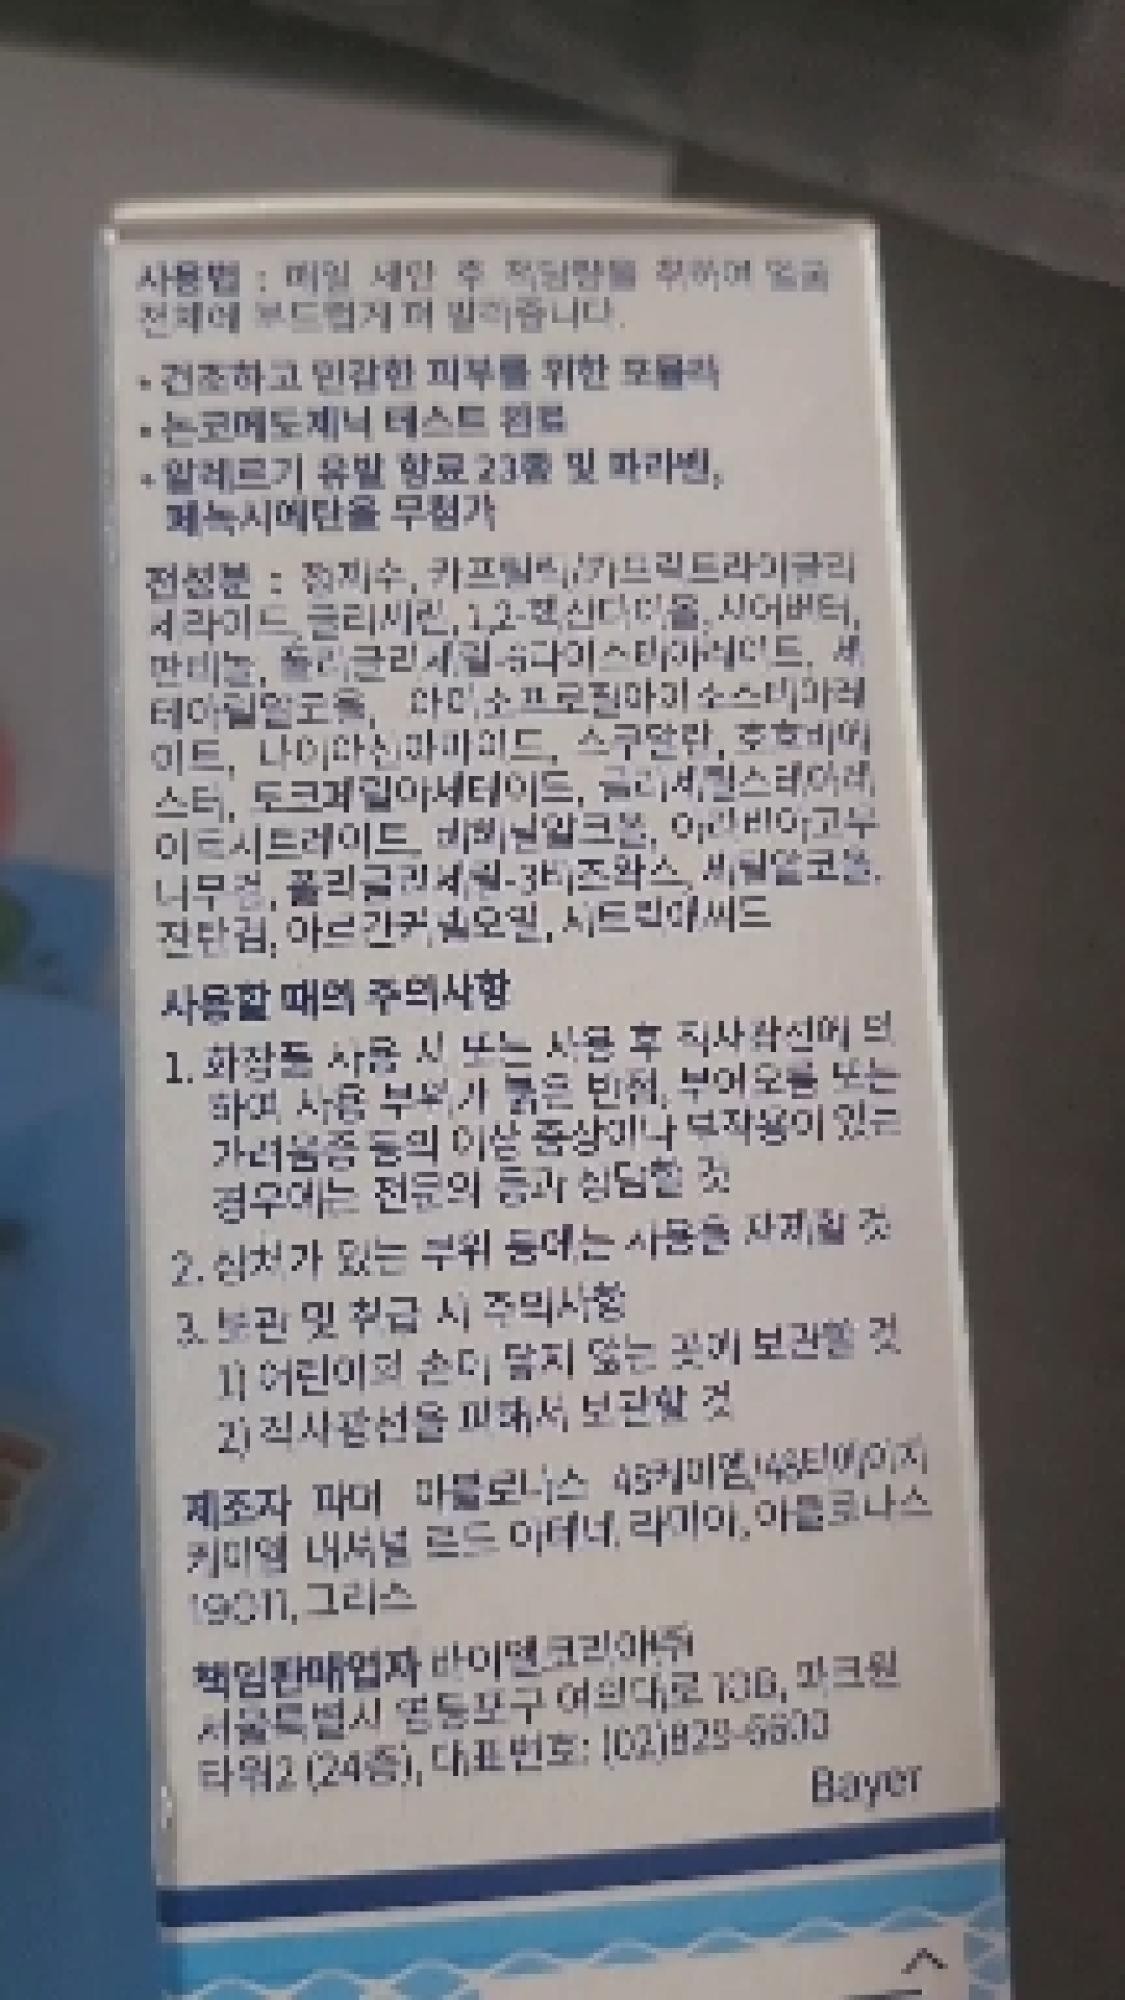 사용법 : 매일 세안 후 적당량을 취하여 얼굴
전체에 부드럽게 펴 발라줍니다.
• 건조하고 민감한 피부를 위한 포뮬라
• 논코메도제닉 테스트 완료
• 알레르기 유발 향료 23종 및 파라벤,
페녹시에탄올 무첨가
전성분 : 정제수, 카프릴릭/카프릭트라이글리
세라이드, 글리세린, 1,2-헥산다이올, 시어버터,
판테놀, 폴리글리세릴-6다이스테아레이트, 세
테아릴알코올, 아이소프로필아이소스테아레
이트, 나이아신아마이드, 스쿠알란, 호호바에
스터, 토코페릴아세테이트, 글리세릴스테아레
이트시트레이트, 베헤닐알코올, 아라비아고무
나무검, 폴리글리세릴-3비즈왁스, 세틸알코올,
잔탄검, 아르간커넬오일, 시트릭애씨드
사용할 때의 주의사항
1. 화장품 사용 시 또는 사용 후 직사광선에 의
하여 사용 부위가 붉은 반점, 부어오름 또는
가려움증 등의 이상 증상이나 부작용이 있는
경우에는 전문의 등과 상담할 것
2. 상처가 있는 부위 등에는 사용을 자제할 것
3. 보관 및 취급 시 주의사항
1) 어린이의 손이 닿지 않는 곳에 보관할 것
2) 직사광선을 피해서 보관할 것
제조자 파머 아폴로나스 48케이엠/48티에이치
케이엠 내셔널 로드 아테네, 라미아,
19011, 그리스
책임판매업자 바이엘코리아㈜
서울특별시 영등포구 여의대로 108, 파크원
타워2 (24층), 대표번호: (02)829-6600
Bayer